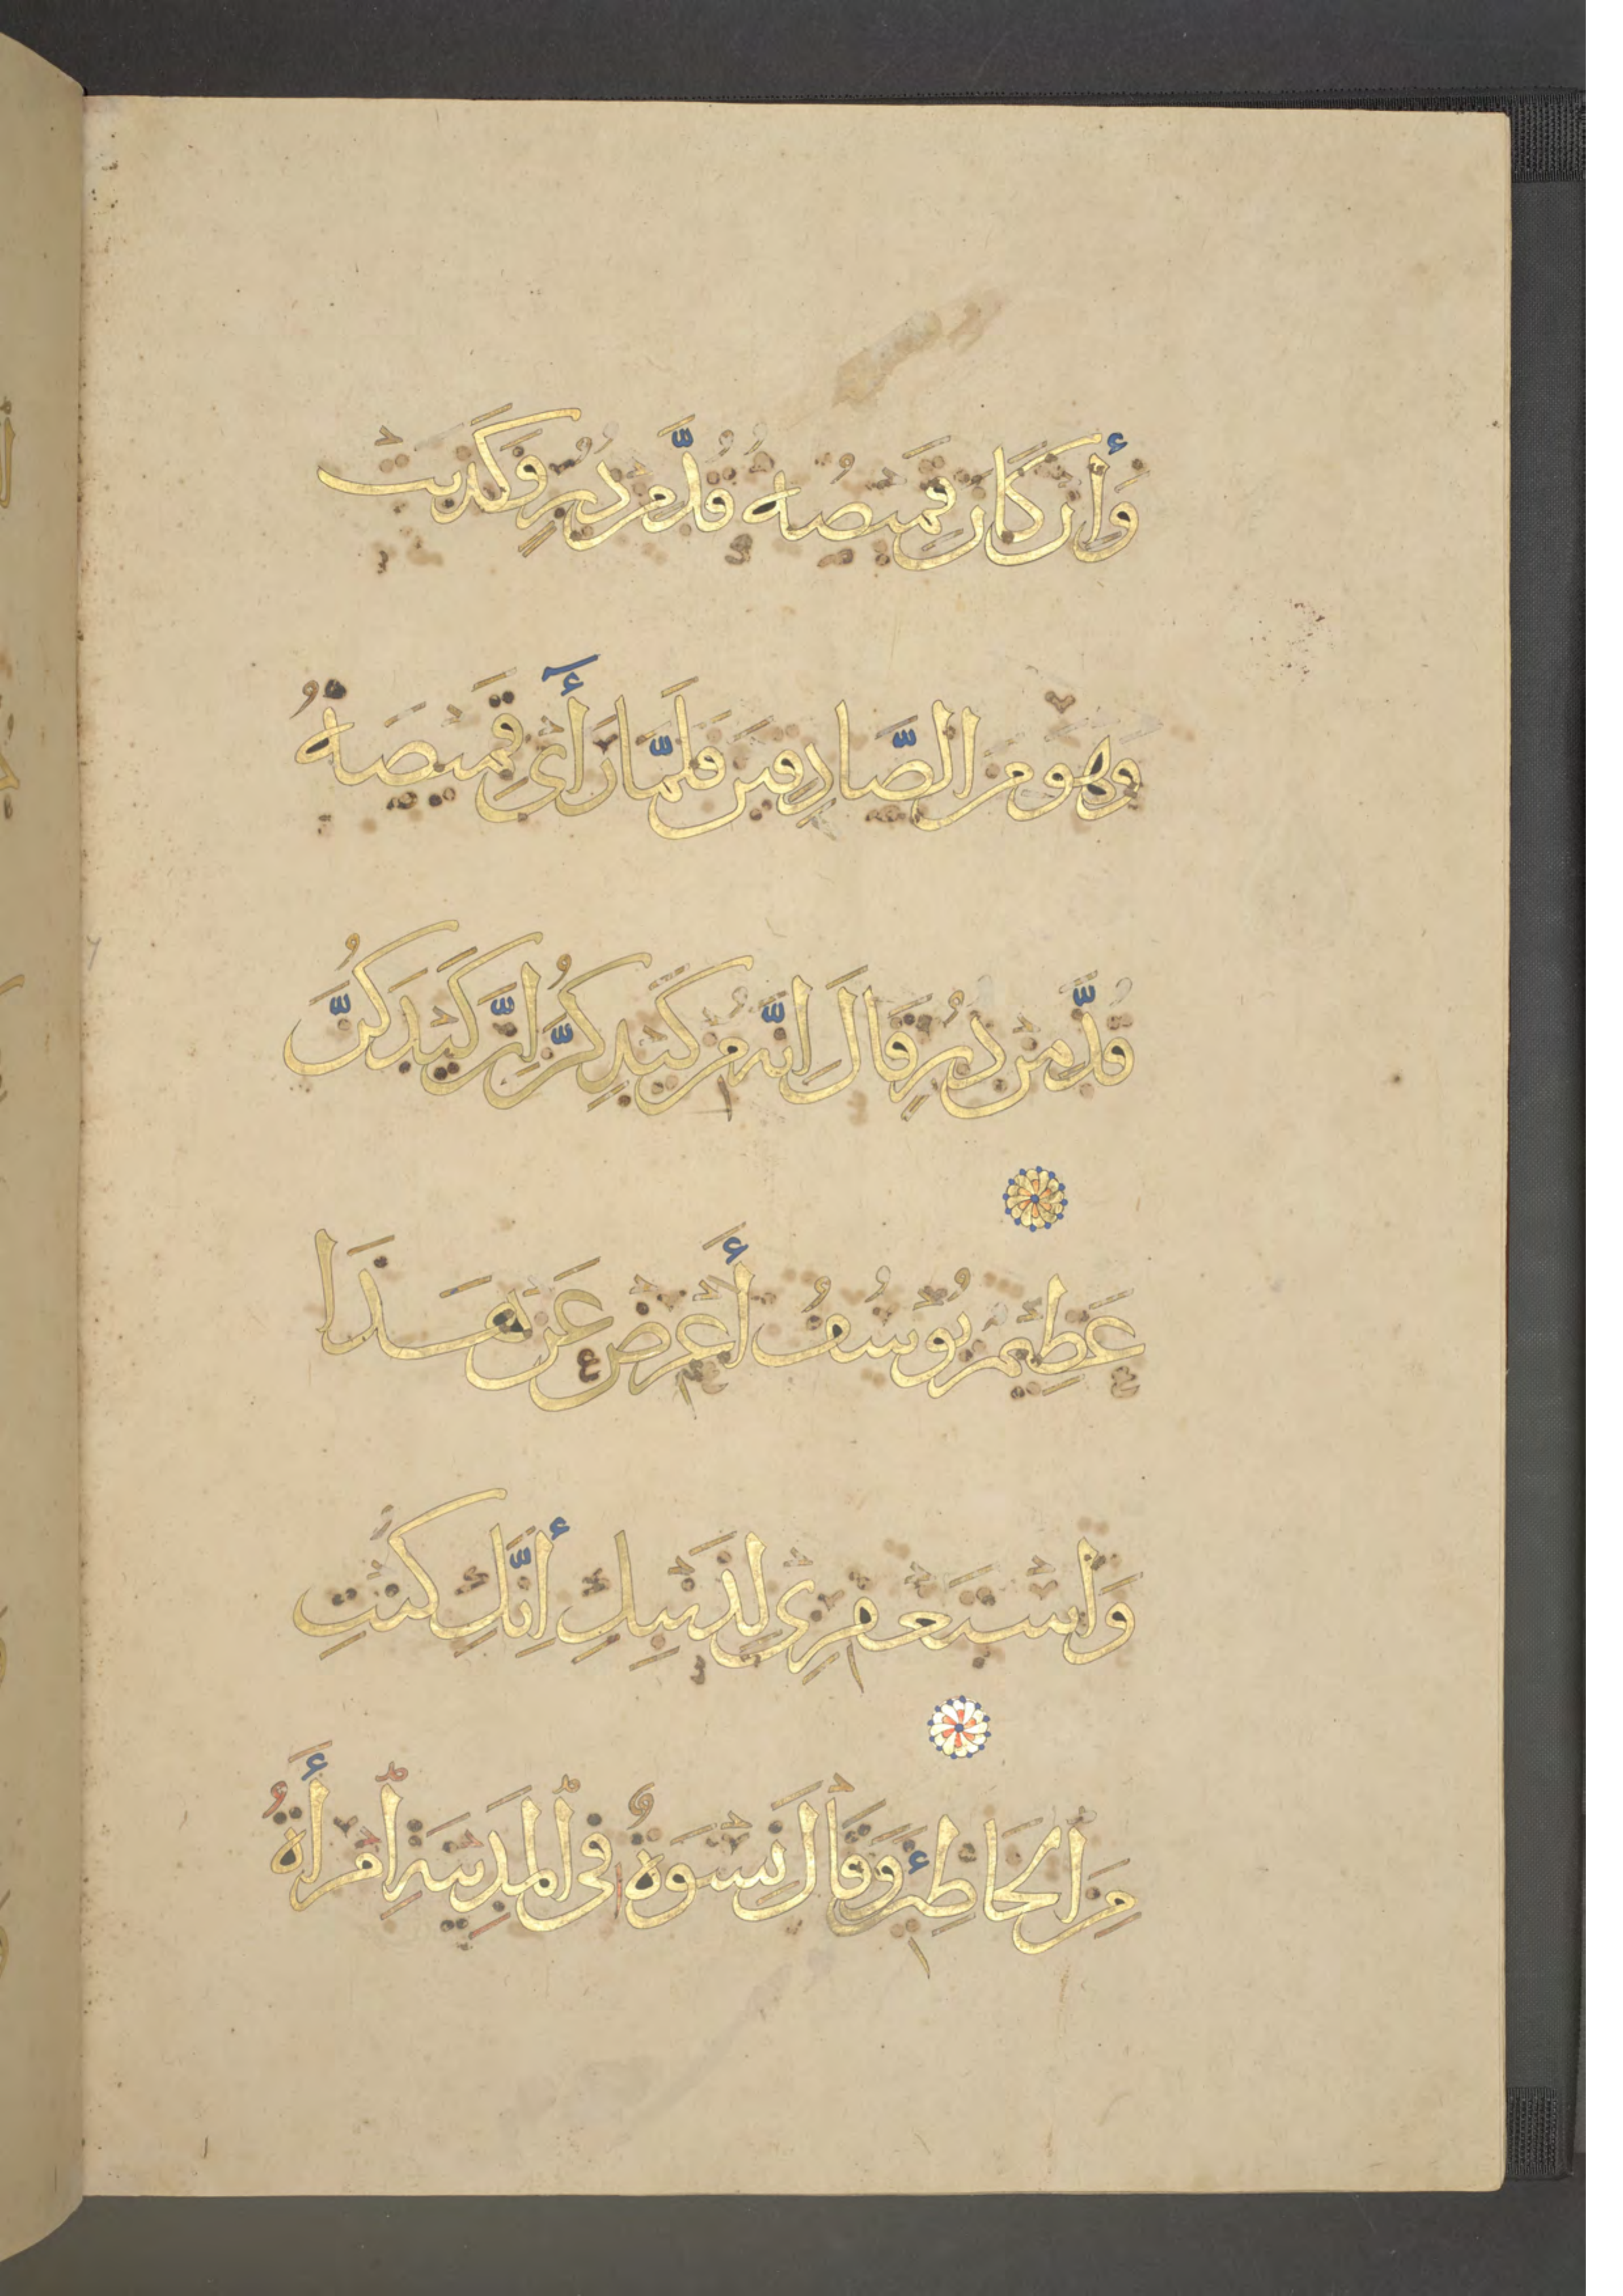 وَإِن كَانَ قَمِيصُهُ قُدَّ مِن دُبُرٍ فَكَذَبَتْ
وَهُوَ مِنَ الصَّادِقِينَ فَلَمَّا رَأَى قَمِيصَهُ
قُدَّ مِن دُبُرٍ قَالَ إِنَّهُ مِن كَيْدِكُنَّ إِنَّ كَيْدَكُنَّ
عَظِيمٌ يُوسُفُ أَعْرِضْ عَنْ هَذَا
وَاسْتَغْفِرِي لِذَنْبِكِ إِنَّكِ كُنْتِ
مِنَ الْخَاطِئِينَ وَقَالَ نِسْوَةٌ فِي الْمَدِينَةِ امْرَأَةُ